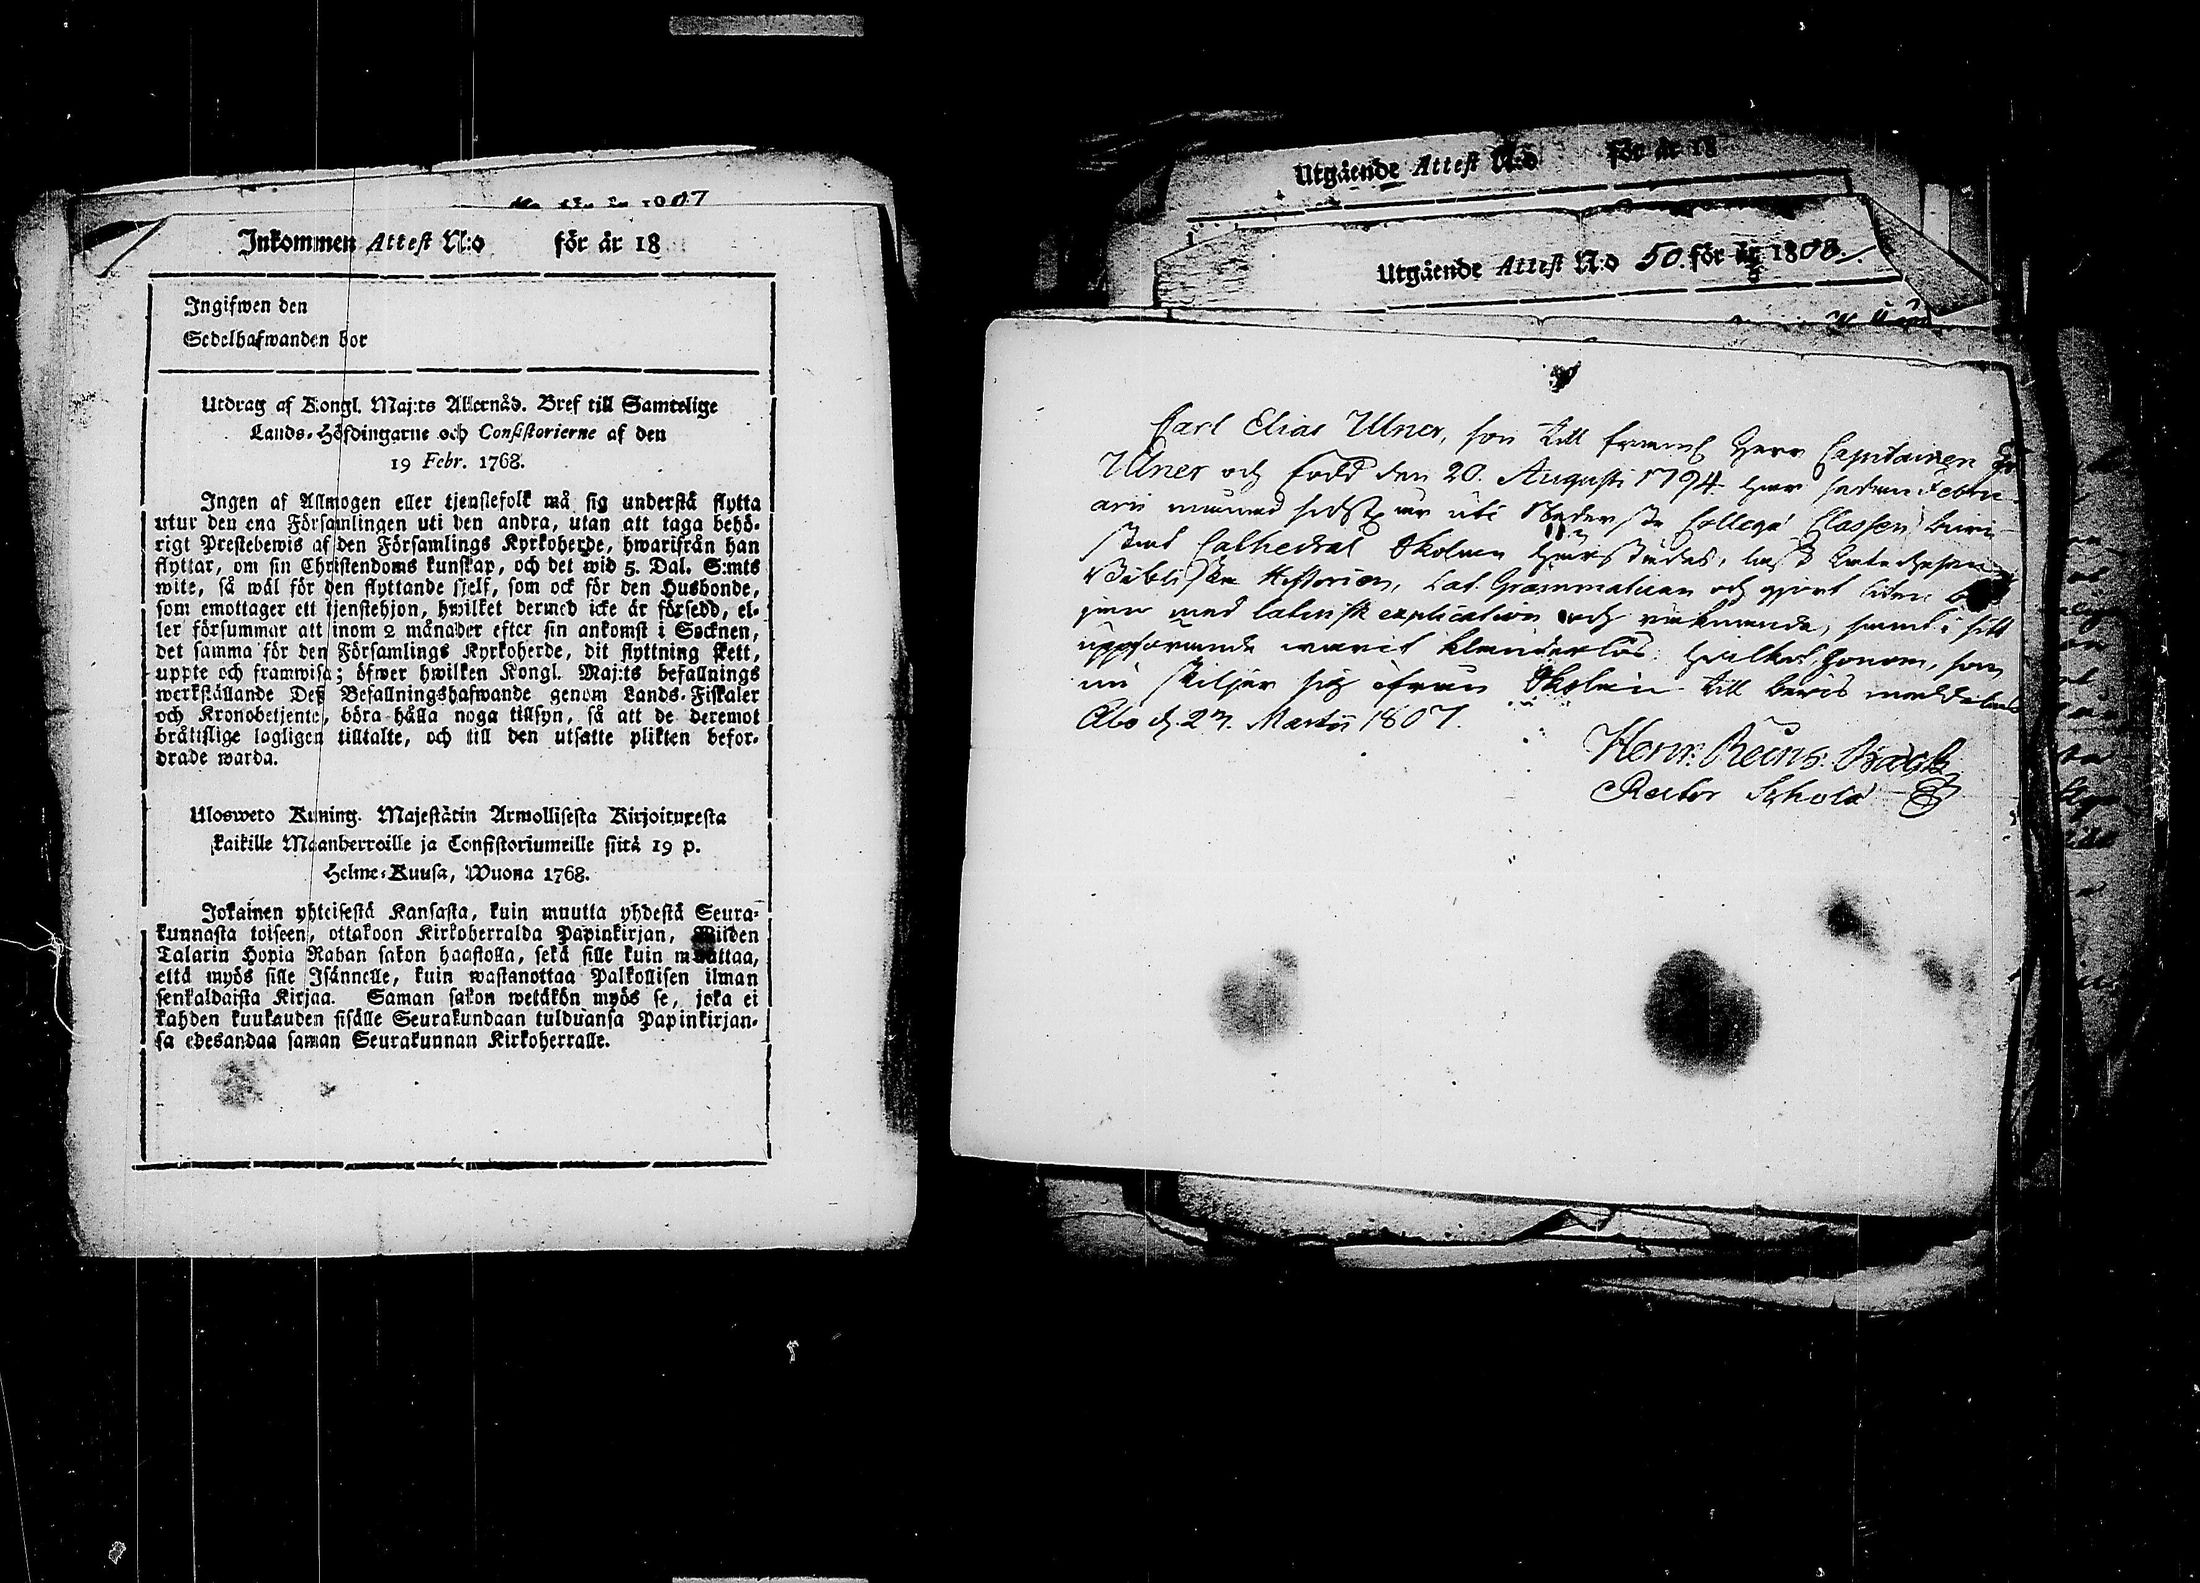 Inkommen Attest N:o för år 18
Ingifwen den
Sedelhafwanden bor
Utdrag af Kongl. Maj:ts Allernåd. Bref till Samtelige
Lands-Höfdingarne och Consistorierne af den
19 Febr. 1768.
Ingen af Allmogen eller tjenstefolk må sig understå flytta
utur den ena Församlingen uti den andra, utan att taga behö-
rigt Prestebewis af den Församlings Kyrkoherde, hwarifrån han
flyttar, om sin Christendoms kunskap, och det wid 5. Dal. S:mts
wite, så wäl för den flyttande sjelf, som ock för den Husbonde,
som emottager ett tjenstehjon, hwilket dermed icke är försedd, el-
ler försummar att inom 2 månader efter sin ankomst i Socknen,
det samma för den Församlings Kyrkoherde, dit flyttning skett,
uppte och framwisa; öfwer hwilken Kongl. Maj:ts befallnings
werkställande Deß Befallningshafwande genom Lands-Fiskaler
och Kronobetjente, böra hålla noga tillsyn, så att de deremot
bråttslige lagligen tilltalte, och till den utsatte plikten befor-
drade warda.
Ulosweto Kuning. Majestätin Armollisesta Kirjoituxesta
kaikille Maanherroille ja Consistoriumeille siitä 19 p.
Helme-Kuusa, Wuona 1768.
Jokainen yhteisestä Kansasta, kuin muutta yhdestä Seura-
kunnasta toiseen, ottakoon Kirkoherralda Papinkirjan, Wiiden
Talarin Hopia Rahan sakon haastolla, sekä sille kuin muuttaa,
että myös sille Isännelle, kuin wastanottaa Palkollisen ilman
senkaldaista Kirjaa. Saman sakon wetäkön myös se, joka ei
kahden kuukauden sisälle Seurakundaan tulduansa Papinkirjan-
sa edesandaa saman Seurakunnan Kirkoherralle.
Utgående Attest N:o för år 18
Utgående Attest N:o 50. för år 1808.
Carl Elias Ulner, son till framl Herr Capitainen
Ulner och född den 20. Augusti 1794. har sedan Febru-
arii månad sidstl. år uti Nederste Collega Classen
Cathedral Skolan härstädes, läst Catechesen
Bibliska Historien, Lat. Grammatican och gjort
med latinsk explication och räknande, samt i sitt
uppförande warit klanderlös. Hwilket honom, som
nu skiljer sig ifrån Skolan till bewis meddelas
Åbo d. 27. Martii 1807.
Herm: Reins. Back
Rector Scholæ